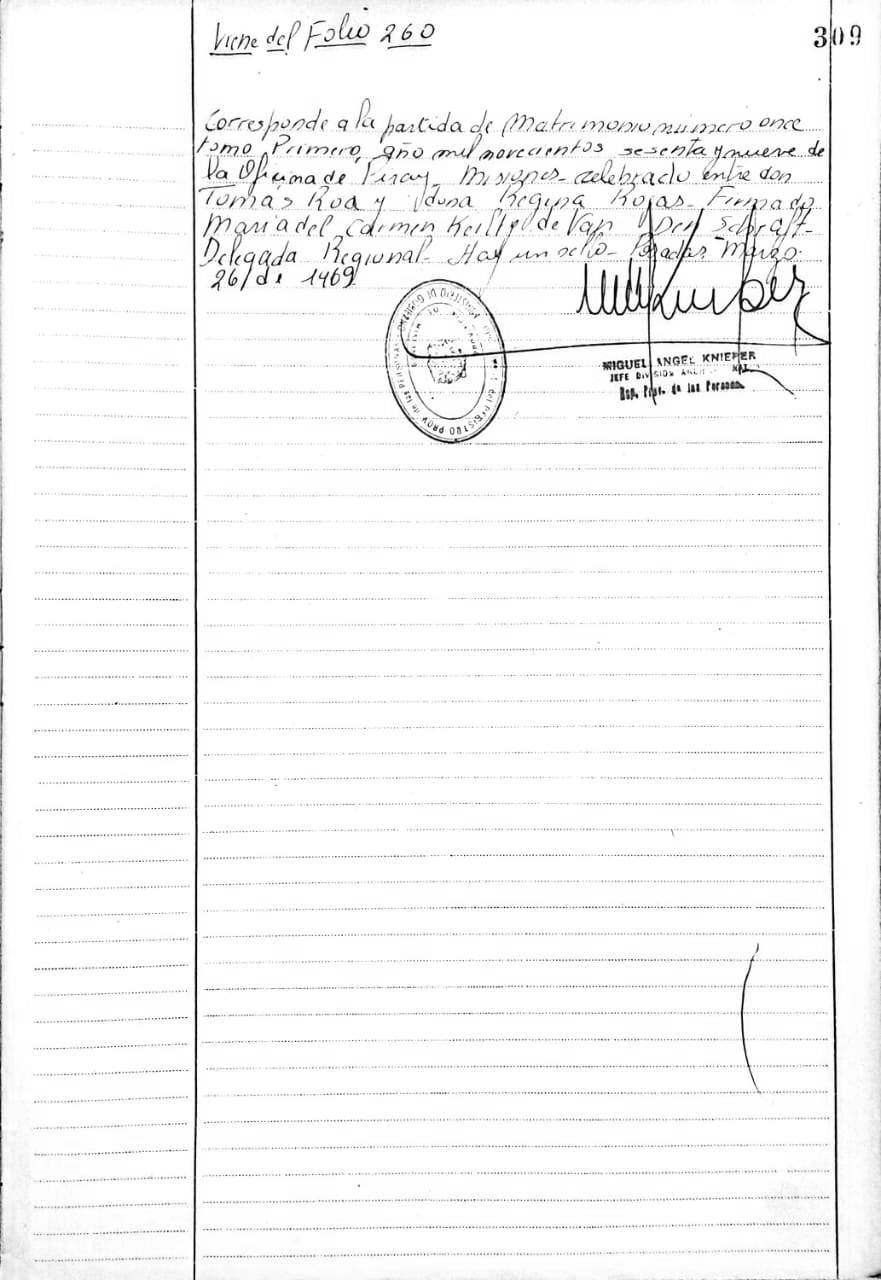 Viene del Folio 260
309
Corresponde a la partida de Matrimonio número once
tomo Primero, año mil novecientos sesenta y nueve de
la Oficina de Piray - Misiones - celebrado entre don
Tomas Roa y doña Regina Rojas - Firmado
Maria del Carmen de Van Den
Delegada Regional - Hay un sello - Posadas - Marzo
26/de 1969
MIGUEL ANGEL KNIEPER
JEFE DIVISION
Reg. Prov. de las Personas